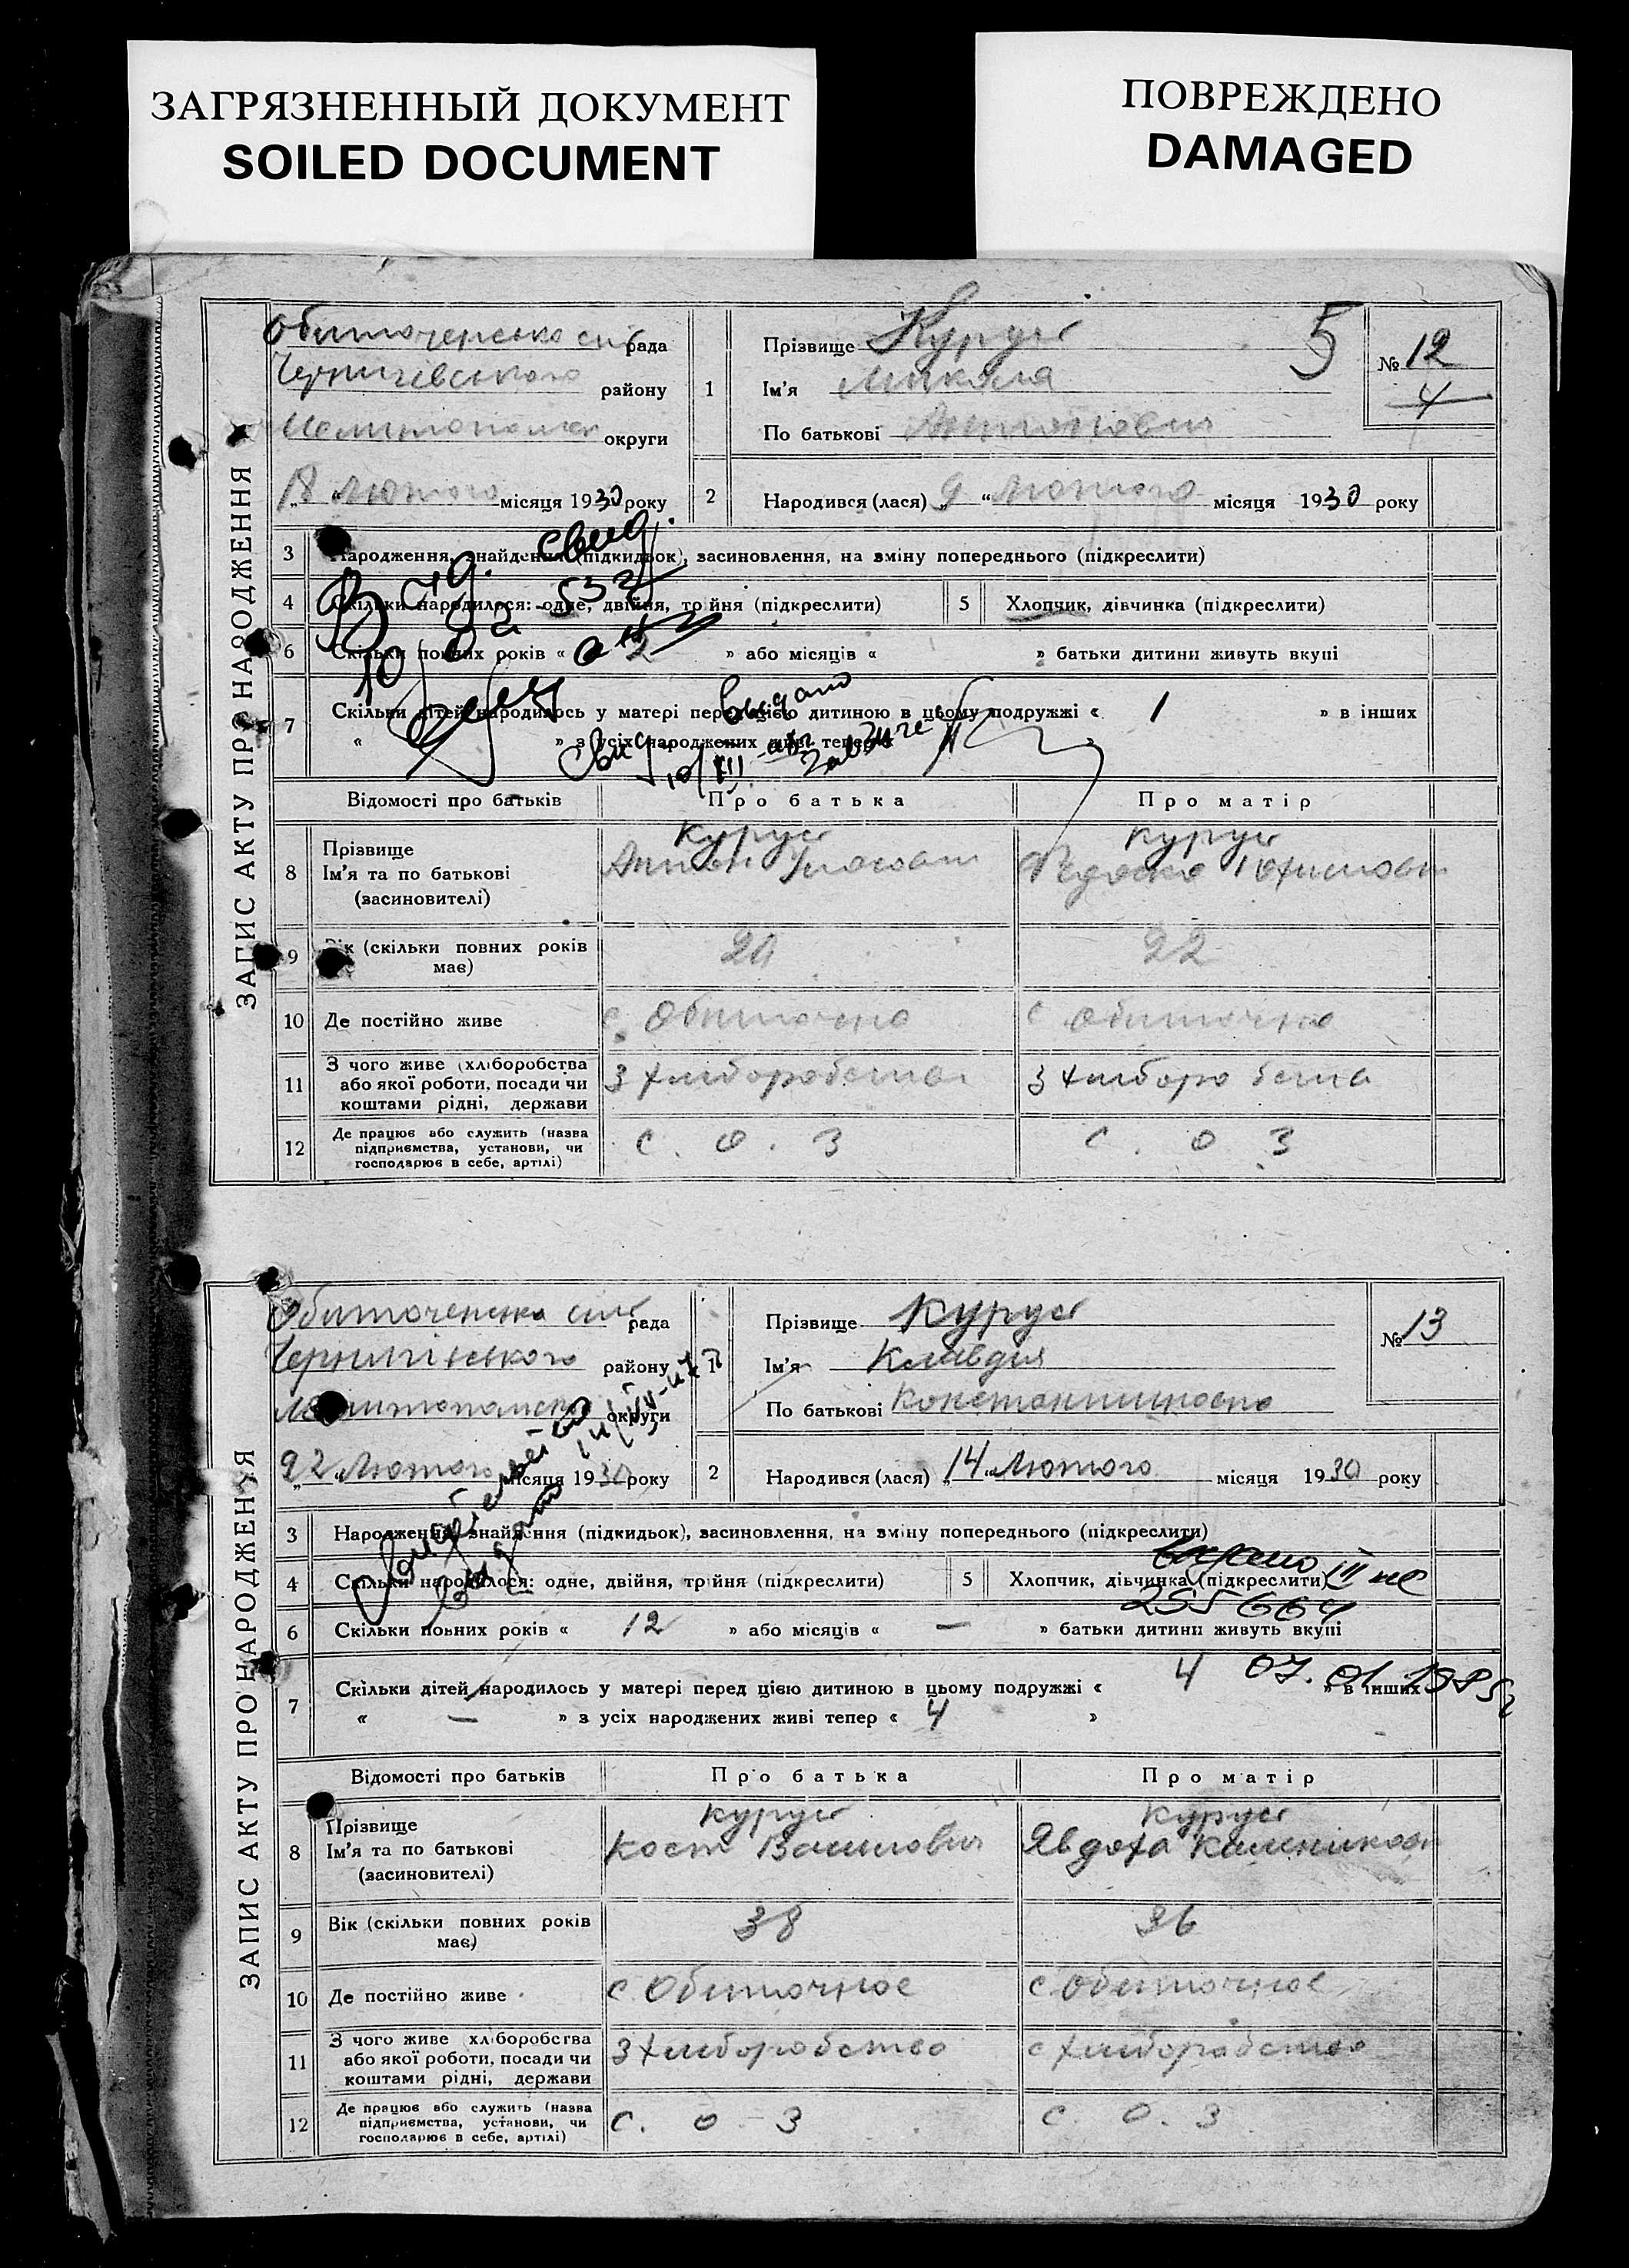 ЗАГРЯЗНЕННЫЙ ДОКУМЕНТ
SOILED DOCUMENT
ПОВРЕЖДЕНО
DAMAGED
ЗАПИС АКТУ ПРО НАРОДЖЕННЯ
рада
району
округи
18 Лютого місяця 1930 року
1
Прізвище Курус
Ім'я Микола
По батькові Антонович
5
№ 12
4
2
Народився (лася) „9“ Лютого місяця 1930 року
3
Народження, знайдення (підкидьок), засиновлення, на зміну попереднього (підкреслити)
4
Скільки народилося: одне, двійня, трійня (підкреслити)
5
Хлопчик, дівчинка (підкреслити)
6
Скільки повних років « 2 » або місяців « » батьки дитини живуть вкупі
7
Скільки дітей народилось у матері перед цією дитиною в цьому подружжі « 1 » в інших
« » з усіх народжених живі тепер «
видано
Відомості про батьків
Про батька
Про матір
8
Прізвище
Ім'я та по батькові
(засиновителі)
Курус
Антон
Курус
9
Вік (скільки повних років
має)
22
10
Де постійно живе
с Обиточна
с Обиточна
11
З чого живе (хліборобства
або якої роботи, посади чи
коштами рідні, держави
З хліборобства
З хліборобства
12
Де працює або служить (назва
підприємства, установи, чи
господарює в себе, артілі)
С. О. З
С. О. З
ЗАПИС АКТУ ПРО НАРОДЖЕННЯ
Обиточенська сіль рада
Чернигівського району
округи
22 Лютого місяця 1930 року
1
Прізвище Курус
Ім'я Клавдия
По батькові Константиновна
№ 13
2
Народився (лася) „14“ Лютого місяця 1930 року
3
Народження, знайдення (підкидьок), засиновлення, на зміну попереднього (підкреслити)
4
Скільки народилося: одне, двійня, трійня (підкреслити)
5
Хлопчик, дівчинка (підкреслити)
видано III
255664
07.01.1985
6
Скільки повних років « 12 » або місяців « — » батьки дитини живуть вкупі
7
Скільки дітей народилось у матері перед цією дитиною в цьому подружжі « 4 » в інших
« — » з усіх народжених живі тепер « 4 »
Відомості про батьків
Про батька
Про матір
8
Прізвище
Ім'я та по батькові
(засиновителі)
Курус
Кост Василович
Курус
Явдоха
9
Вік (скільки повних років
має)
38
36
10
Де постійно живе
с Обиточное
с Обиточное
11
З чого живе (хліборобства
або якої роботи, посади чи
коштами рідні, держави
З хліборобство
с хліборобство
12
Де працює або служить (назва
підприємства, установи, чи
господарює в себе, артілі)
С. О З
С О. З